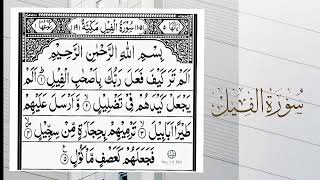 اٰيَاتُهَا ٥ (١٠٥) سُوْرَةُ الْفِيْلِ مَكِّيَّةٌ (١٩) رُكُوْعُهَا ١
بِسْمِ اللّٰهِ الرَّحْمٰنِ الرَّحِيْمِ
اَلَمْ تَرَ كَيْفَ فَعَلَ رَبُّكَ بِاَصْحٰبِ الْفِيْلِ ١ اَلَمْ
يَجْعَلْ كَيْدَهُمْ فِيْ تَضْلِيْلٍ ٢ وَّاَرْسَلَ عَلَيْهِمْ
طَيْرًا اَبَابِيْلَ ٣ تَرْمِيْهِمْ بِحِجَارَةٍ مِّنْ سِجِّيْلٍ ٤
فَجَعَلَهُمْ كَعَصْفٍ مَّاْكُوْلٍ ٥
سُورَةُ الفِيل